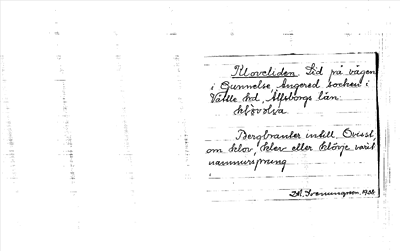 Kloveliden Lid på vägen
i Gunnelse, Angered socken i
Vättle hd, Älfsborgs län.
klövəlia
Bergbranter intill. Ovisst,
om klov, klev eller klövje varit
namnursprung
1938